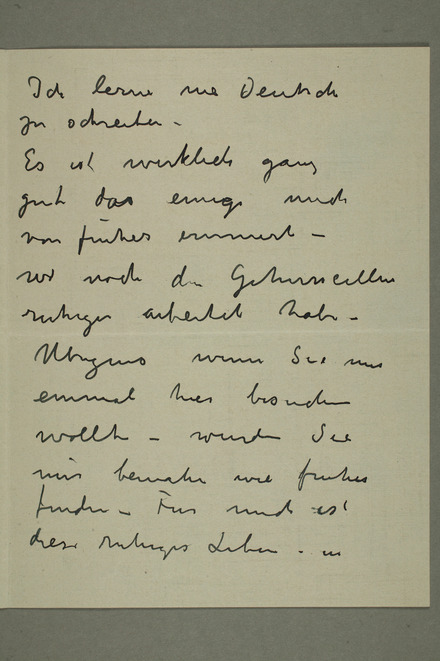 Ich lerne nie Deutsch
zu schreiben -
Es ist wirklich ganz
gut das einige mich
von früher erinnert -
wo noch die Gehirnzellen
ruhiger arbeitet habe -
Übrigens wenn Sie mich
einmal hier besuchen
wollte - wurden Sie
mir beinahe wie früher
finden - Für mich ist
diese ruhiges Leben - in